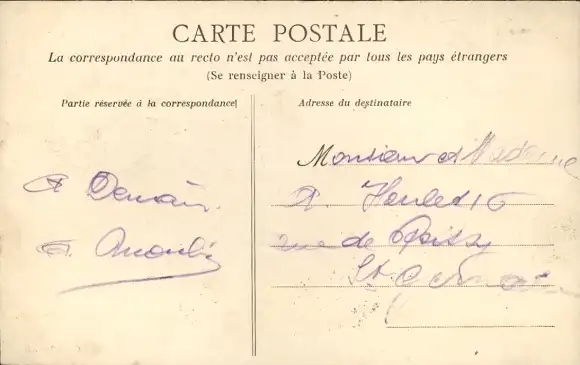 CARTE POSTALE
La correspondance au recto n'est pas acceptée par tous les pays étrangers
(Se renseigner à la Poste)
Partie réservée à la correspondance
Adresse du destinataire
A Demain
Monsieur et Madame
A. Houlet 16
rue de Poissy
St